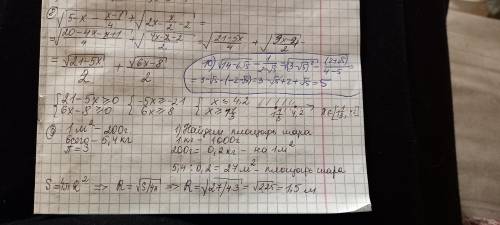 ⑤ √(5-x-(x-1)/4) + √(2x-x/2-2) =
= √((20-4x-x+1)/4) + √((4x-x-2)/2) = √((21-5x)/4) + √((3x-2)/2) =
= √(21-5x)/2 + √(6x-8)/2
10) √(14-6√5) - 1/(2-√5) = (3-√5) - (2+√5)/(4-5) =
= 3-√5-(-2-√5) = 3-√5+2+√5 = 5
{21-5x≥0 {-5x≥-21 {x≤4,2
{6x-8≥0 {6x≥8 {x≥
③ 1м² - 200г
всего - 5,4 кг
π = 3
1) Найдем площадь шара
1кг = 1000г
200г = 0,2кг - на 1м²
5,4 : 0,2 = 27 м² - площадь шара
S = 4πR² => R = √(S/4π) => R = √(27/4·3) = √2,25 = 1,5 м